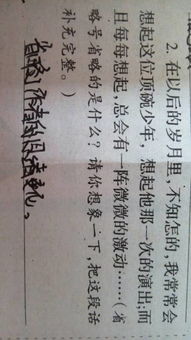 2. 在以后的岁月里,不知怎的,我常常会
想起这位顶碗少年,想起他那一次的演出;而
且每每想起,总会有一阵微微的激动……(省
略号省略的是什么?请你想象一下,把这段话
补充完整。)
省略了作者的